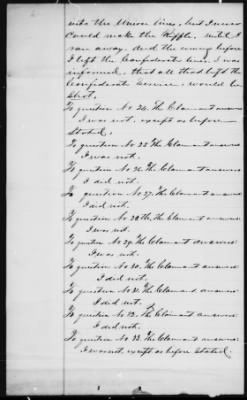 into the Union lines, but I never
could make the Riffle, until I
ran away. And the evening before
I left the Confederate lines. I was
informed, that all that left the
Confederate Service, would be
Shot.
To question No 24. The Claimant answers
I was not, except as before
Stated.
To question No 25 The Claimant answers
I was not.
To question No 26 The Claimant answers
I did not.
To question No 27. The Claimant answers
I did not.
To question No 28th. The Claimant answers
I was not.
To question No 29. The Claimant answers
I was not.
To question No 30. The Claimant answers
I did not.
To question No 31. The Claimant answers
I did not.
To question No The Claimant answers
I did not.
To question No 33. The Claimant answers
I was not, except as before Stated.